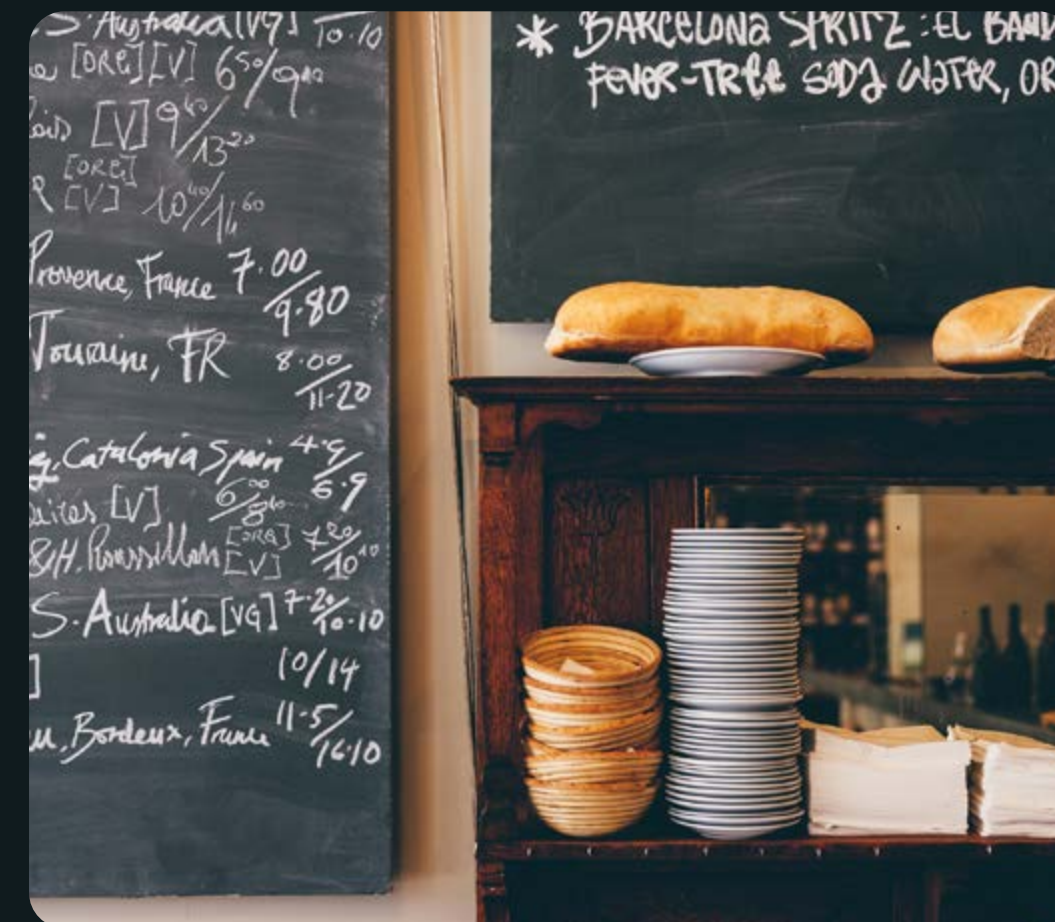 S. Australia [VG] 10.10
[ORG] [V] 6 50/9 40
[V] 9 40/13 20
[ORG]
[V] 10 40/14 60
Provence, France 7.00/9.80
Touraine, FR 8.00/11-20
Catalonia Spain 4.9/6.9
[V] 6 00/8 40
&H. Roussillon [ORG] [V] 7 20/10 10
S. Australia [VG] 7-20/10.10
] 10/14
Bordeux, France 11-5/16.10
* BARCELONA SPRITZ : EL
FEVER-TREE SODA WATER, OR